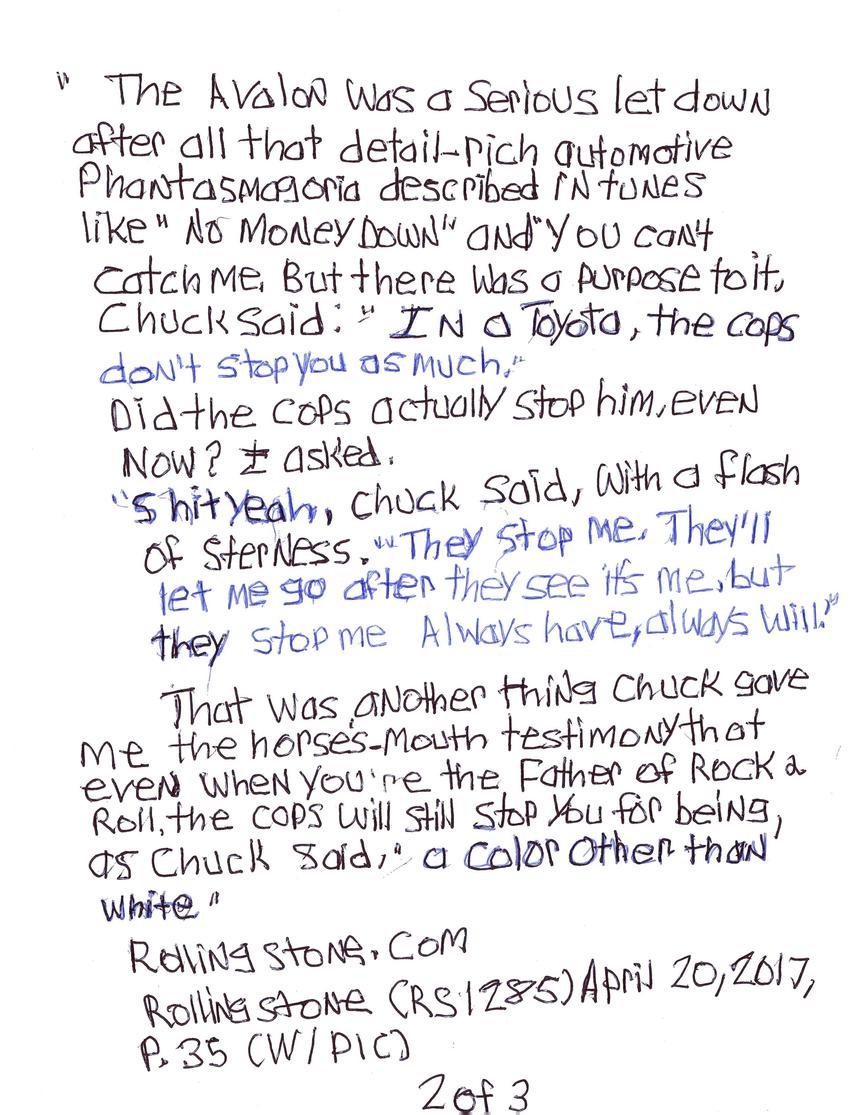 " The Avalon was a serious let down
after all that detail-rich automotive
Phantasmagoria described in tunes
like "No Money Down" and "You can't
catch me. But there was a purpose to it,
Chuck said: "In a Toyota, the cops
don't stop you as much."
Did the cops actually stop him, even
Now? I asked.
"Shit yeah, Chuck said, with a flash
of sterness. "They stop me. They'll
let me go after they see it's me, but
they stop me Always have, always will."
That was another thing Chuck gave
me the horses-mouth testimony that
even when you're the Father of Rock &
Roll, the cops will still stop you for being,
as Chuck said, "a color other than
white"
Rolling Stone.com
Rolling Stone (RS1285) April 20, 2017,
P. 35 (W/PIC)
2 of 3